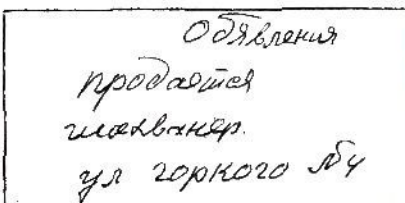 Обявления
продается
шахванер.
ул горкого №4